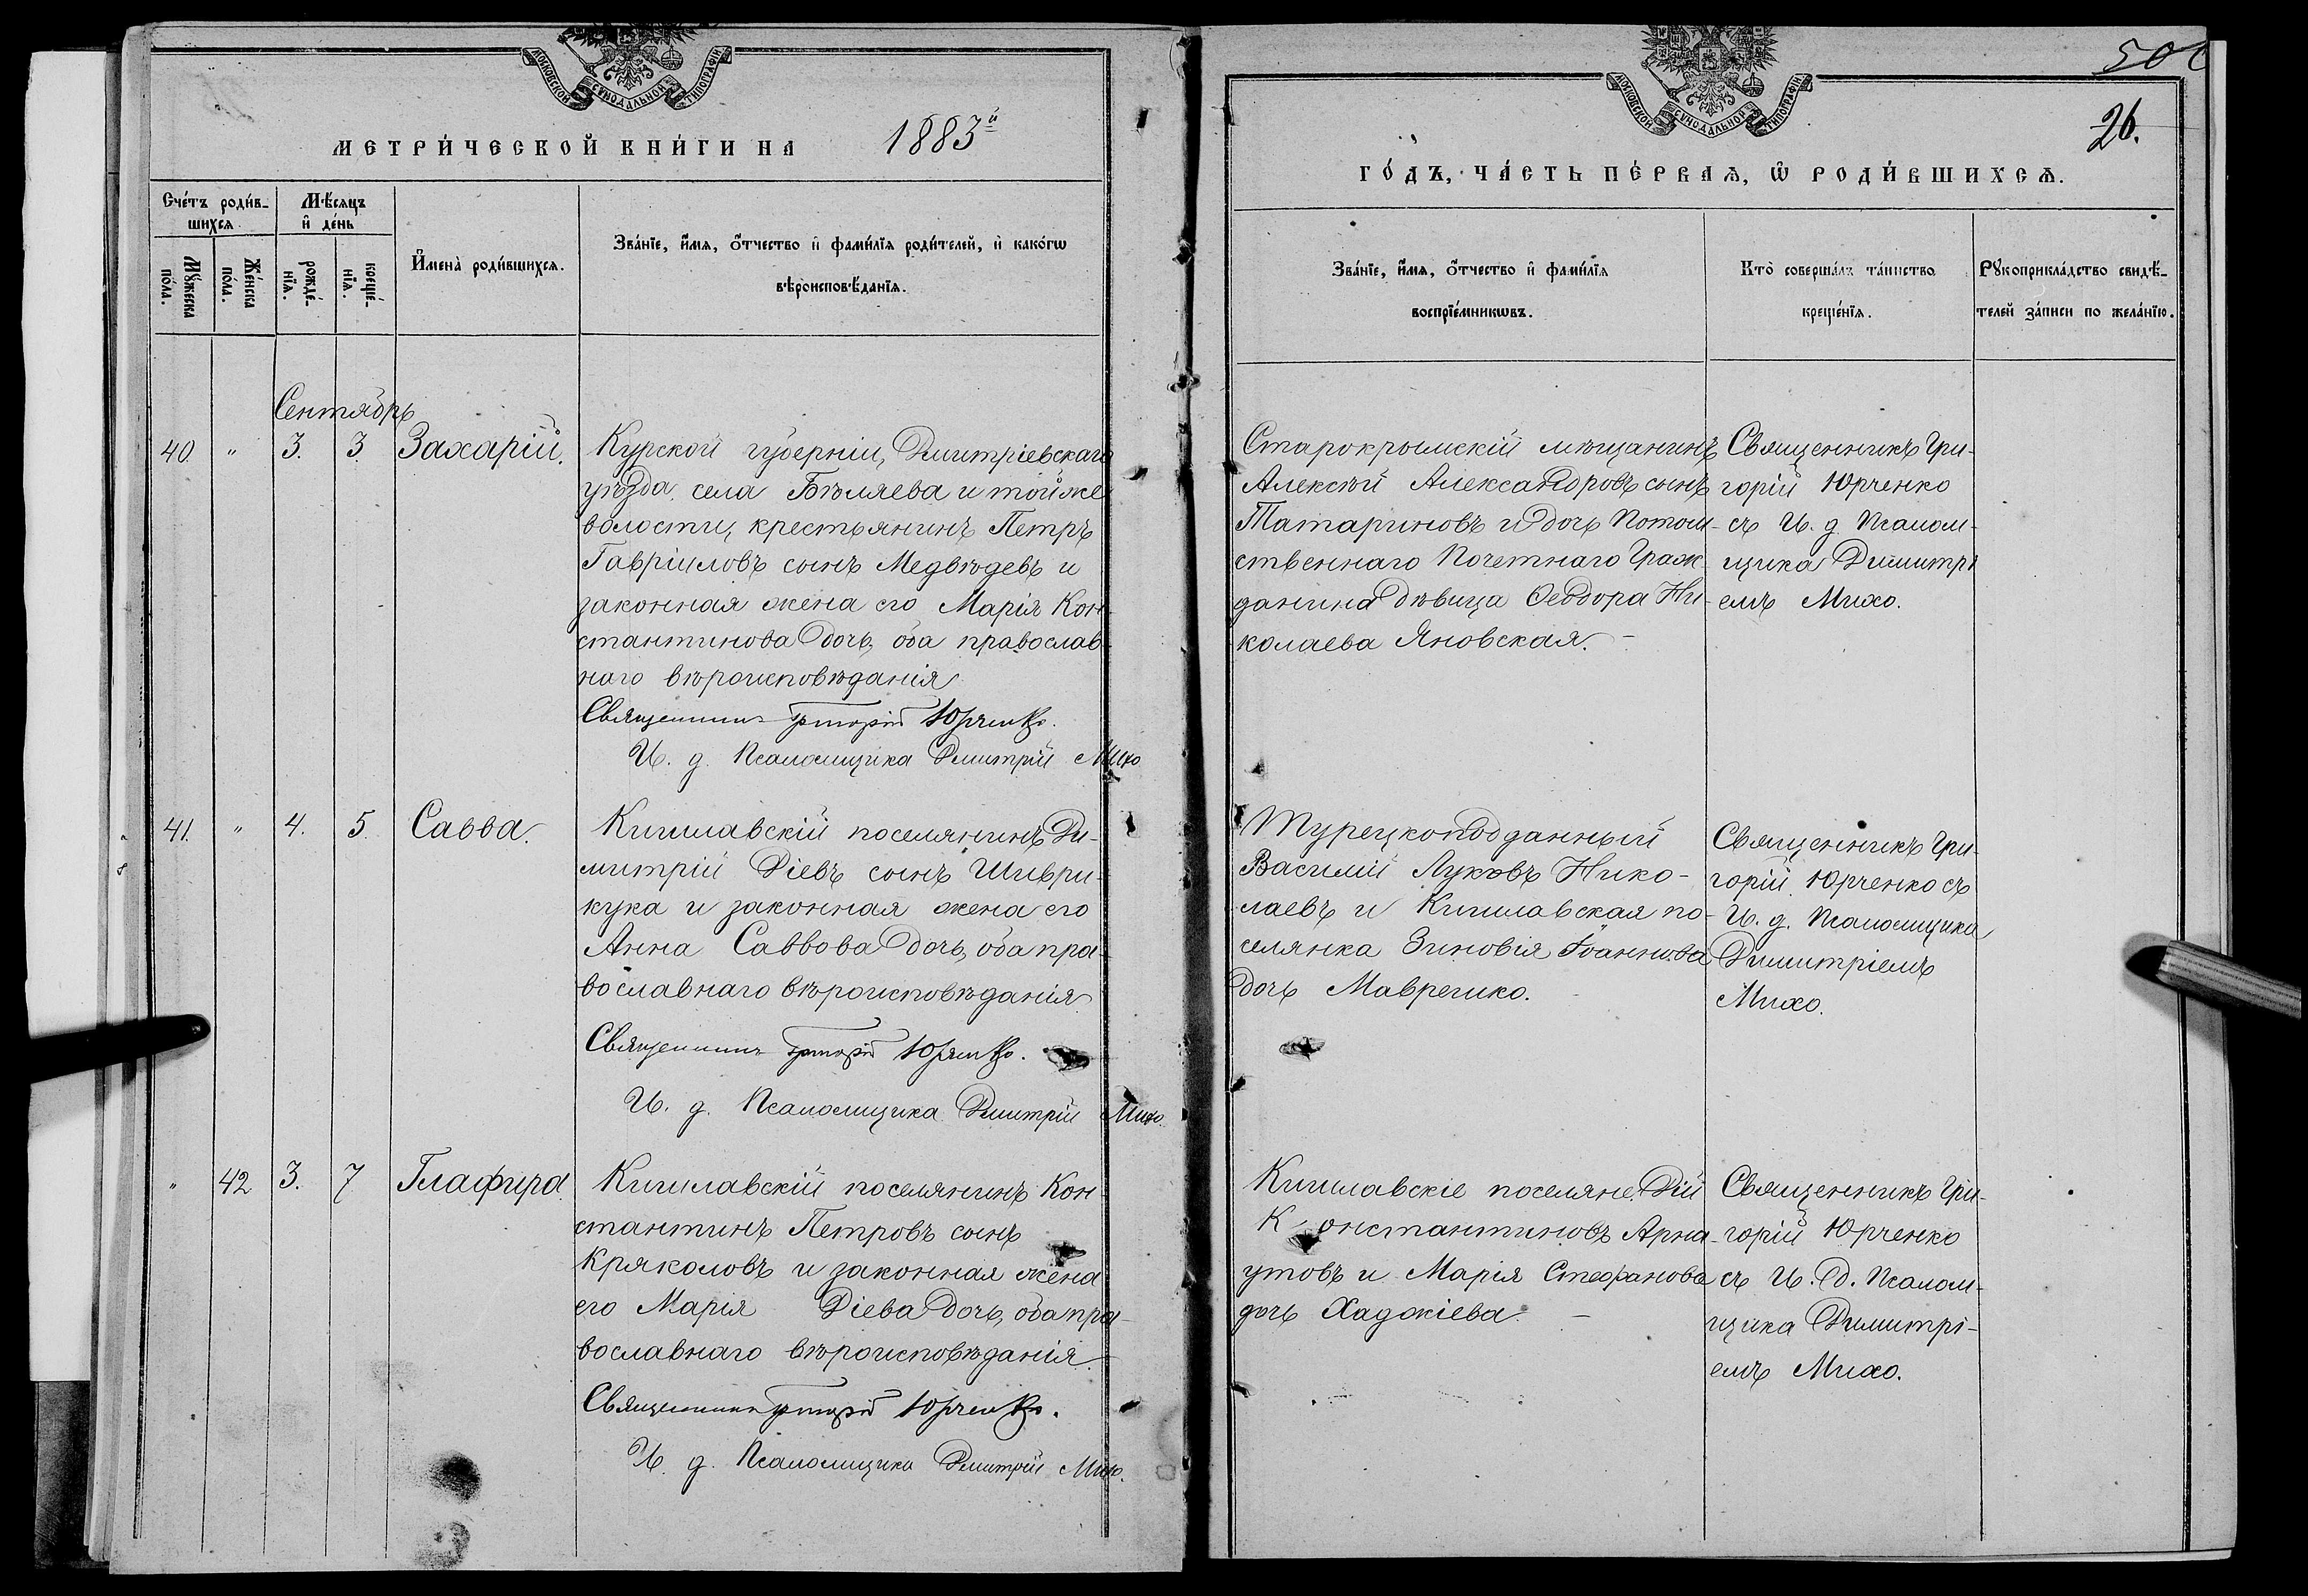 МОСКОВСКОЙ СѴНОДАЛЬНОЙ ТИПОГРАФІИ
МЕТРИ́ЧЕСКОЙ КНИ́ГИ НА 1883й
Сче́тъ роди́в-
шихся
Мѣ́сяцъ
и҆ де́нь
И҆мена̀ роди́вшихся.
Зва́нїе, и҆́мя, ѻ҆́тчество и҆ фами́лїя роди́телей, и҆ како́гѡ
вѣроисповѣ́данїя.
Мꙋ́жеска
по́ла.
Же́нска
по́ла.
рожде́-
нїя.
креще́-
нїя.
Сентябрь
40. " 3. 3. Захарій.
Курской губерніи, Дмитріевскаго
уѣзда, села Бѣляева и той же
волости, крестьянинъ Петръ
Гавріиловъ сынъ Медвѣдевъ и
законная жена его Марія Кон-
стантинова дочь, оба православ-
наго вѣроисповѣданія
Священникъ Григорій Юрченко.
И. д. Псаломщика Дмитрій Михо
41. " 4. 5. Савва.
Кишлавскій поселянинъ Ди-
митрій Діевъ сынъ Шиври-
кука и законная жена его
Анна Саввова дочь, оба пра-
вославнаго вѣроисповѣданія
Священникъ Григорій Юрченко.
И. д. Псаломщика Дмитрій Михо.
" 42 3. 7 Глафира.
Кишлавскій поселянинъ Кон-
стантинъ Петровъ сынъ
Кряколовъ и законная жена
его Марія Діева дочь, оба пра-
вославнаго вѣроисповѣданія.
Священникъ Григорій Юрченко.
И. д. Псаломщика Дмитрій Михо.
МОСКОВСКОЙ СѴНОДАЛЬНОЙ ТИПОГРАФІИ
26.
ГО́ДЪ, ЧА́СТЬ ПЕ́РВАЯ, Ѡ҆ РОДИ́ВШИХСЯ.
Зва́нїе, и҆́мя, ѻ҆́тчество и҆ фами́лїя
воспрїе́мникѡвъ.
Кто̀ соверша́лъ та́инство
креще́нїя.
Рꙋкоприкла́дство свидѣ́-
телей за́писи по жела́нїю.
Старокрымскій мѣщанинъ
Алексѣй Александровъ сынъ
Татариновъ и дочь Потом-
ственнаго Почетнаго Граж-
данина дѣвица Ѳеодора Ни-
колаева Яновская. –
Священникъ Гри-
горій Юрченко
съ И. д. Псалом-
щика Димитрі
емъ Михо.
Турецкоподданный
Василій Луковъ Нико-
лаевъ и Кишлавская по-
селянка Зиновія Іоаннова
дочь Маврешко.
Священникъ Гри-
горій Юрченко съ
И. д. Псаломщика
Димитріемъ
Михо.
Кишлавскіе поселяне: Дій
Константиновъ Арна-
утовъ и Марія Стефанова
дочь Хаджіева. –
Священникъ Гри-
горій Юрченко
съ И. д. Псалом-
щика Димитрі-
емъ Михо.